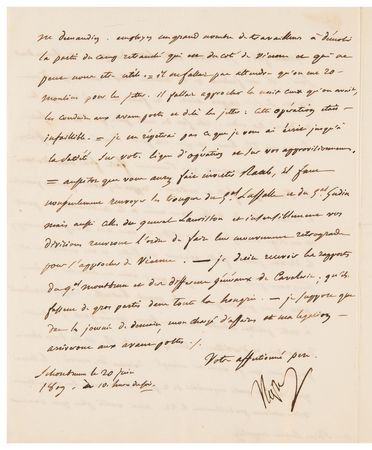 me demandiez. employez un grand nombre de travailleurs à démolir
la partie du camp retranché qui est du côté de Vienne et qui ne
peut nous être utile. = il ne fallait pas attendre qu'on eut 20
moulins pour les jetter. il fallait approcher la nuit ceux qu'on avait,
les conduire aux avant postes et de là les jetter: cette opération était
infaillible. = je ne répéterai pas ce que je vous ai écrit jusqu'à
la satiété sur votre ligne d'opération et sur vos approvisionnemens.
= aussitôt que vous aurez fait investir Raab, il faut
promptement renvoyer les troupes du Gal Lassalle et du Gal Gudin
mais aussi celles du général Lauriston et infailliblement vos
divisions recevront l'ordre de faire leur mouvement rétrograde
pour s'approcher de Vienne. — je desire recevoir les rapports
du Gal montbrun et des différens généraux de Cavalerie, qu'ils
fassent de gros partis dans toute la hongrie. — je suppose que
dans la journée de demain, mon chargé d'affaires et ma légation
arriveront aux avant postes ./.
Votre affectionné père.
Schonbrunn le 20 juin
1809, à 10. heures du soir.
Nap